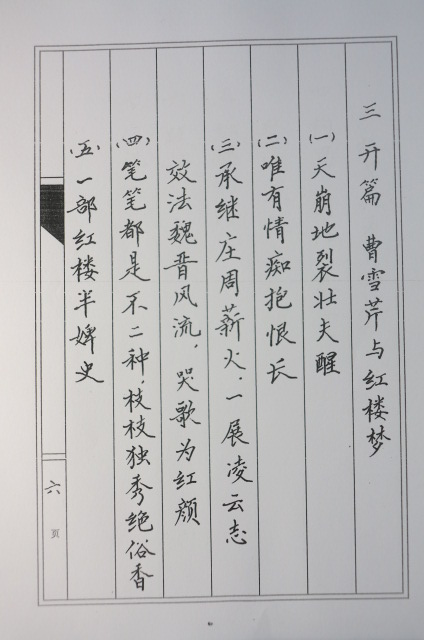 三 开篇 曹雪芹与红楼梦
(一)天崩地裂壮夫醒
(二)唯有情痴抱恨长
(三)承继庄周薪火.一展凌云志
效法魏晋风流.哭歌为红颜
(四)笔笔都是不二种,枝枝独秀绝俗香
(五)一部红楼半婢史
六
页